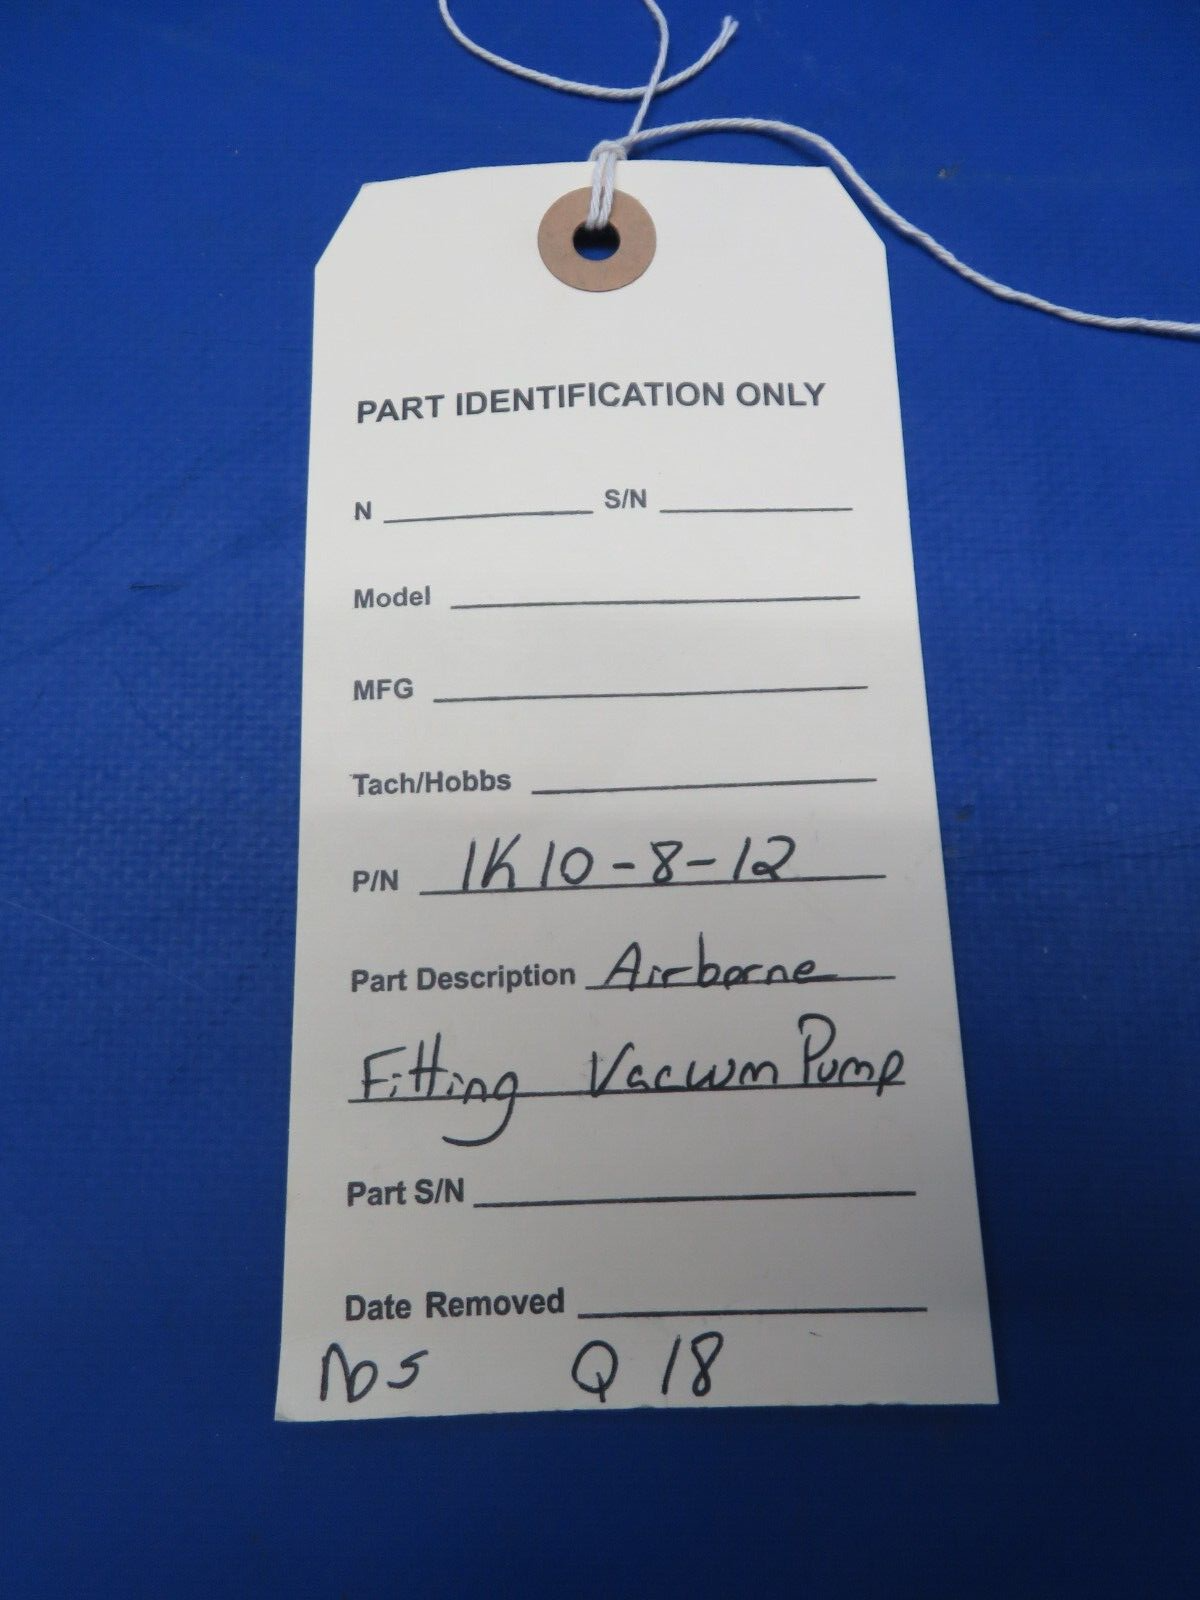 PART IDENTIFICATION ONLY
N S/N
Model
MFG
Tach/Hobbs
P/N 1K10-8-12
Part Description Airborne
Fitting Vacuum Pump
Part S/N
Date Removed
NOS Q 18